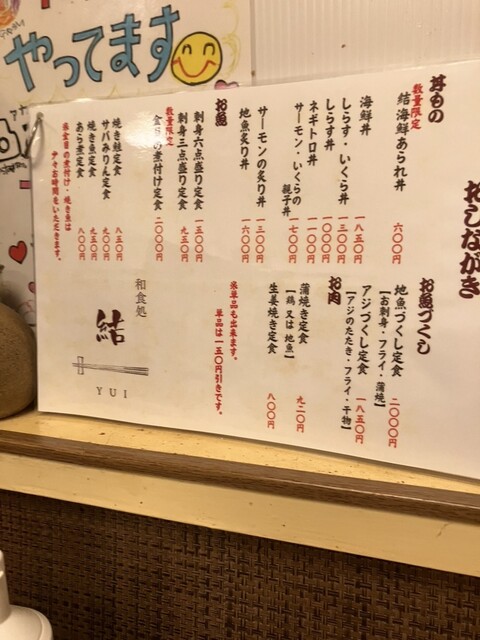 やってます
おしながき
丼もの
数量限定
結海鮮あられ丼 六〇〇円
海鮮丼 一八五〇円
しらす・いくら丼 一三〇〇円
しらす丼 一〇〇〇円
ネギトロ丼 一一〇〇円
サーモン・いくらの親子丼 一七〇〇円
サーモンの炙り丼 一三〇〇円
地魚炙り丼 一六〇〇円
お魚
刺身六点盛り定食 一五〇〇円
刺身三点盛り定食 九五〇円
数量限定
金目の煮付け定食 二〇〇〇円
焼き鮭定食 八五〇円
サバみりん定食 九五〇円
焼き魚定食 九五〇円
あら煮定食 八〇〇円
※金目の煮付け・焼き魚は
少々お時間をいただきます。
お魚づくし
地魚づくし定食 二〇〇〇円
【お刺身・フライ・蒲焼】
アジづくし定食 一八五〇円
【アジのたたき・フライ・干物】
お肉
蒲焼き定食 九二〇円
【鶏 又は 地魚】
生姜焼き定食 八〇〇円
※単品も出来ます。
単品は一五〇円引きです。
和食処
結
YUI